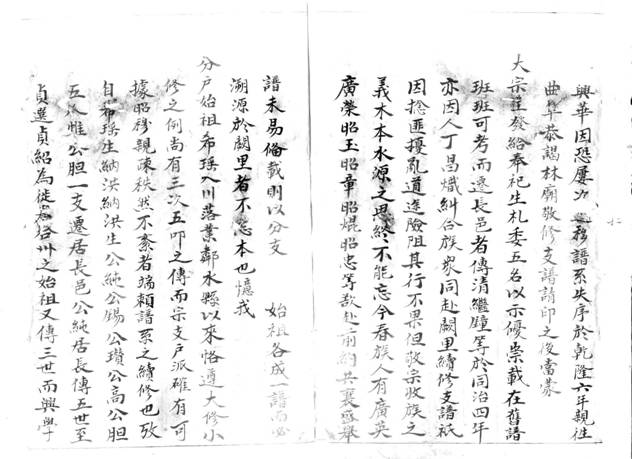 興華因恐屢次遷移譜系失序於乾隆六年親往
曲阜恭謁林廟敬修支譜請印之後當蒙
大宗主發給奉祀生札委五名以示優崇載在舊譜
班班可考而遷長邑者傳清繼鐘等於同治四年
亦因人丁昌熾糾合族眾同赴闕里續修支譜祇
因捻匪擾亂道途險阻其行不果但敬宗收族之
義木本水源之思終不能忘今春族人有廣英
廣榮昭玉昭章昭焜昭忠等欲赴前約共襄盛舉
譜未易備載則以分支 始祖各成一譜而必
溯源於闕里者不忘本也憶我
分戶始祖希瑤入川落業鄰水縣以來恪遵大修小
修之例尚有三次五印之傳而宗支戶派確有可
據昭穆親疎秩然不紊者端賴譜系之續修也攷
自希瑤生納洪納洪生公純公錫公瓚公高公胆
五派惟公胆一支遷居長邑公純居長傳五世至
貞選貞紹為徙 州之始祖又傳三世而興學